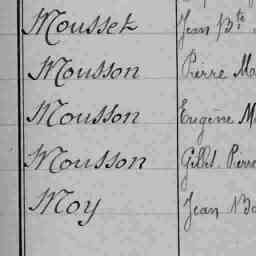 Mousset Jean Bte
Mousson Pierre Ma
Mousson Eugène M
Mousson Gilles Pierre
Moy Jean Ba